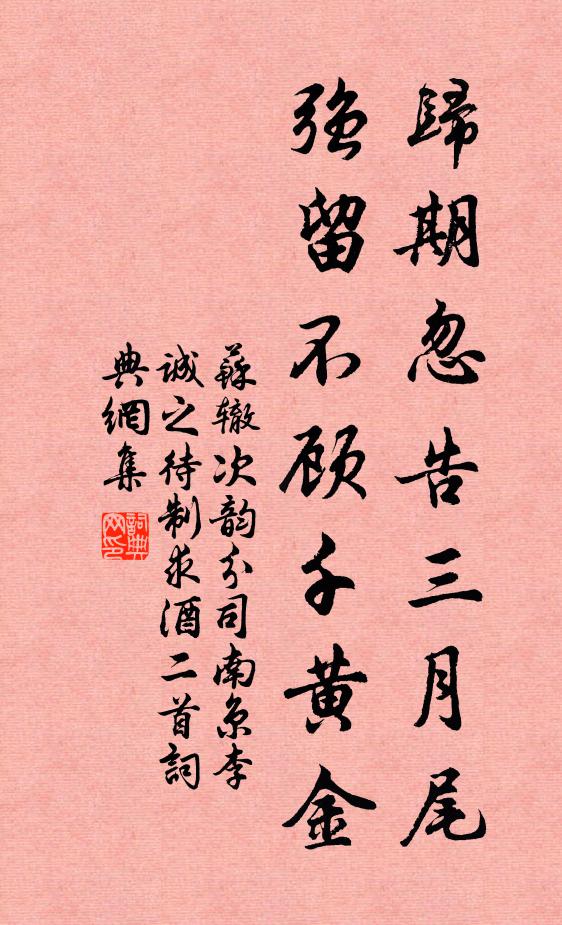 歸期忽告三月尾
強留不顾千黄金
蘇辙次韵分司南京李
诚之待制求酒二首詞
典網集
詞典
网印